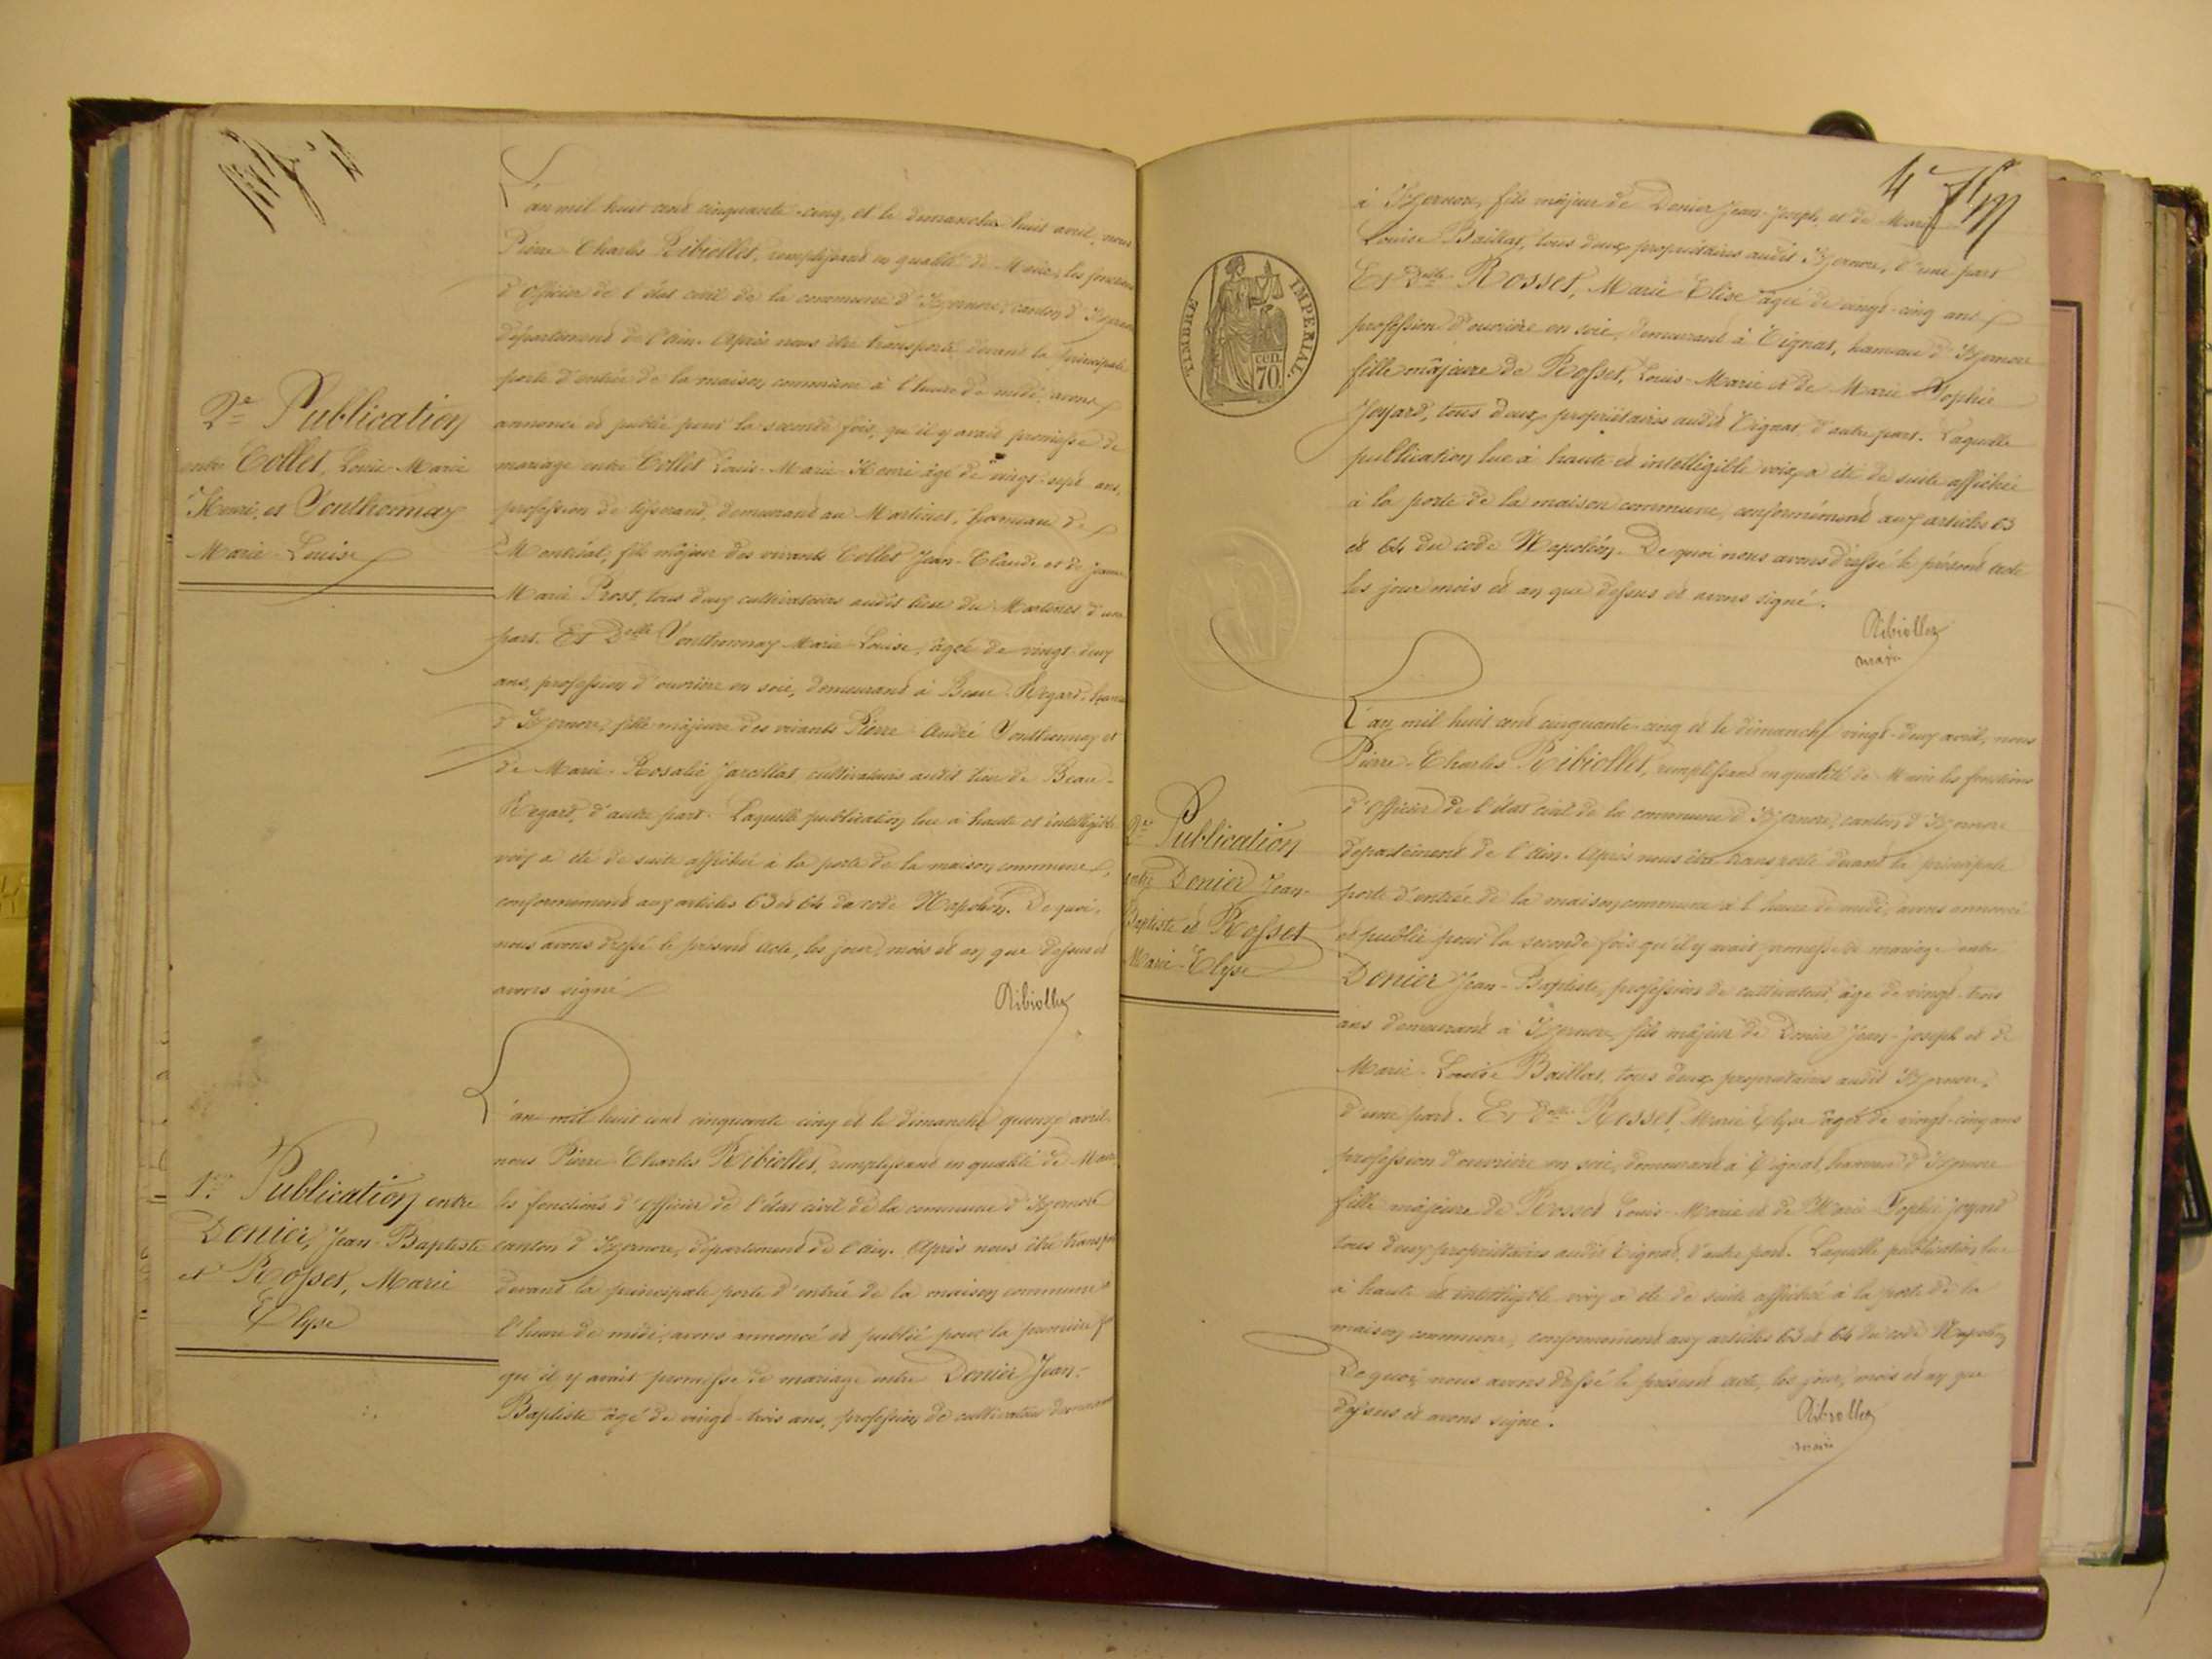 2e Publication
entre Collet, Louis-Marie
Henri, et Ponthonnay
Marie-Louise
L'an mil huit cent cinquante-cinq, et le dimanche huit avril, nous
Pierre-Charles Ribiollet, remplissant en qualité de Maire, les fonctions
d'Officier de l'état civil de la commune d'Izernore, canton d'Izernore
département de l'Ain. Après nous être transporté devant la principale
porte d'entrée de la maison commune à l'heure de midi, avons
annoncé et publié pour la seconde fois, qu'il y avait promesse de
mariage entre Collet Louis-Marie-Henri âgé de vingt-sept ans,
profession de tisserand, demeurant au Martinet, hameau de
Montréal, fils majeur des vivants Collet Jean-Claude et de Jeanne
Marie Prost, tous deux cultivateurs audit lieu du Martinet, d'une
part. Et Delle Ponthonnay Marie-Louise, âgée de vingt-deux
ans, profession d'ouvrière en soie, demeurant à Beau-Regard, hameau
d'Izernore, fille majeure des vivants Pierre-André Ponthonnay et
de Marie-Rosalie Jarcellat, cultivateurs audit lieu de Beau-
Regard, d'autre part. Laquelle publication, lue à haute et intelligible
voix a été de suite affichée à la porte de la maison commune,
conformément aux articles 63 et 64 du code Napoléon. De quoi,
nous avons dressé le présent acte, les jour, mois et an que dessus et
avons signé
Ribiollet
1re Publication entre
Donier, Jean-Baptiste
et Rosset, Marie
Elyse
L'an mil huit cent cinquante cinq et le dimanche quinze avril
nous Pierre-Charles Ribiollet, remplissant en qualité de Maire
les fonctions d'Officier de l'état civil de la commune d'Izernore
canton d'Izernore, département de l'Ain. Après nous être transporté
devant la principale porte d'entrée de la maison commune à
l'heure de midi, avons annoncé et publié pour la première fois
qu'il y avait promesse de mariage entre Donier Jean-
Baptiste âgé de vingt-trois ans, profession de cultivateur demeurant
4e
TIMBRE IMPERIAL.
CEN.
70
à Izernore, fils majeur de Donier Jean-Joseph, et de Marie
Louise Baillat, tous deux propriétaires audit Izernore, d'une part
Et Delle Rosset, Marie-Elise âgée de vingt-cinq ans
profession d'ouvrière en soie, demeurant à Tignat, hameau d'Izernore
fille majeure de Rosset, Louis-Marie et de Marie Sophie
Joyard, tous deux propriétaires audit Tignat, d'autre part. Laquelle
publication lue à haute et intelligible voix, a été de suite affichée
à la porte de la maison commune, conformément aux articles 63
et 64 du code Napoléon. De quoi nous avons dressé le présent acte
les jour mois et an que dessus et avons signé.
Ribiollet
maire
2e Publication
entre Donier Jean-
Baptiste et Rosset
Marie-Elyse
L'an mil huit cent cinquante-cinq et le dimanche vingt-deux avril, nous
Pierre-Charles Ribiollet, remplissant en qualité de Maire les fonctions
d'Officier de l'état civil de la commune d'Izernore, canton d'Izernore
département de l'Ain. Après nous être transporté devant la principale
porte d'entrée de la maison commune à l'heure de midi, avons annoncé
et publié pour la seconde fois qu'il y avait promesse de mariage entre
Donier Jean-Baptiste, profession de cultivateur, âgé de vingt-trois
ans demeurant à Izernore, fils majeur de Donier Jean-Joseph et de
Marie-Louise Baillat, tous deux propriétaires audit Izernore,
d'une part. Et Delle Rosset, Marie Elyse âgée de vingt-cinq ans
profession d'ouvrière en soie, demeurant à Tignat, hameau d'Izernore
fille majeure de Rosset Louis-Marie et de Marie-Sophie Joyard
tous deux propriétaires audit Tignat, d'autre part. Laquelle publication lue
à haute et intelligible voix a été de suite affichée à la porte de la
maison commune, conformément aux articles 63 et 64 du code Napoléon
De quoi nous avons dressé le présent acte, les jour, mois et an que
dessus et avons signé.
Ribiollet
maire